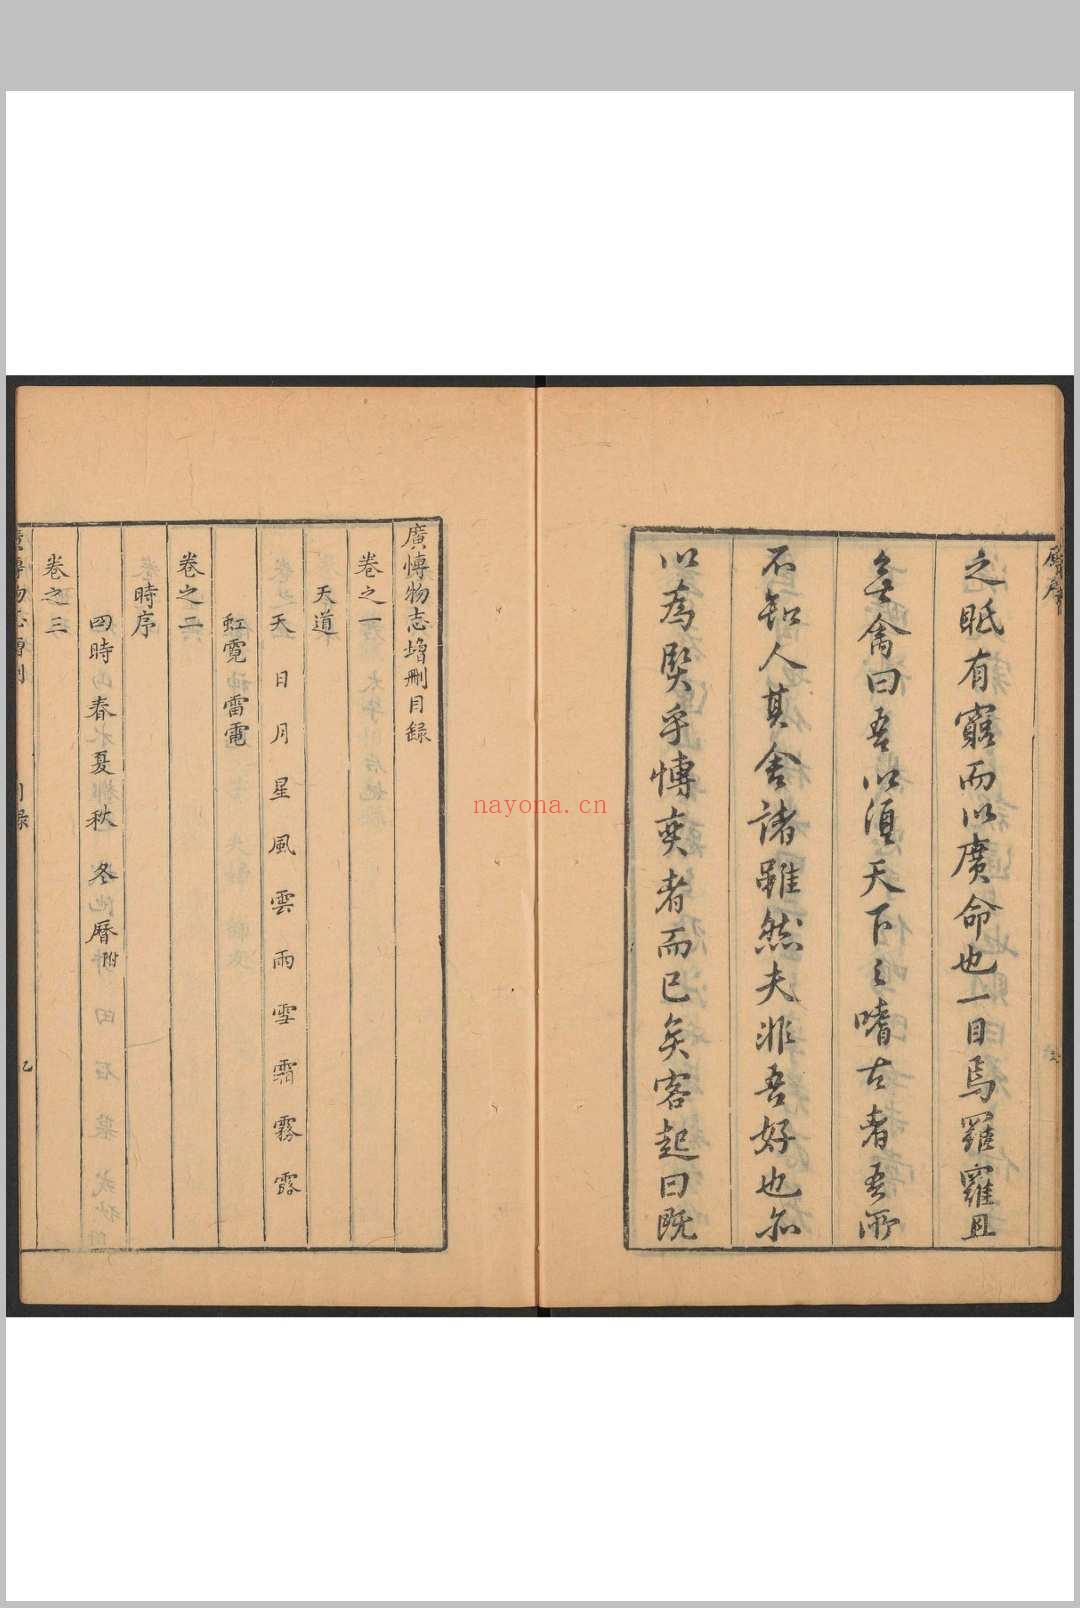 之眂有窮而以廣命也一目焉羅羅且
無禽曰吾以須天下之嗜古者吾所
不知人其舍諸雖然夫非吾好也不
以為賢乎愽奕者而已矣客起曰既
廣愽物志增刪目録
卷之一
天道
天 日 月 星 風 雲 雨 雪 霜 霧 露
虹霓 雷電
卷之二
時序
四時 春 夏 秋 冬 曆附
卷之三
廣愽物志增刪 目録
nayona.cn